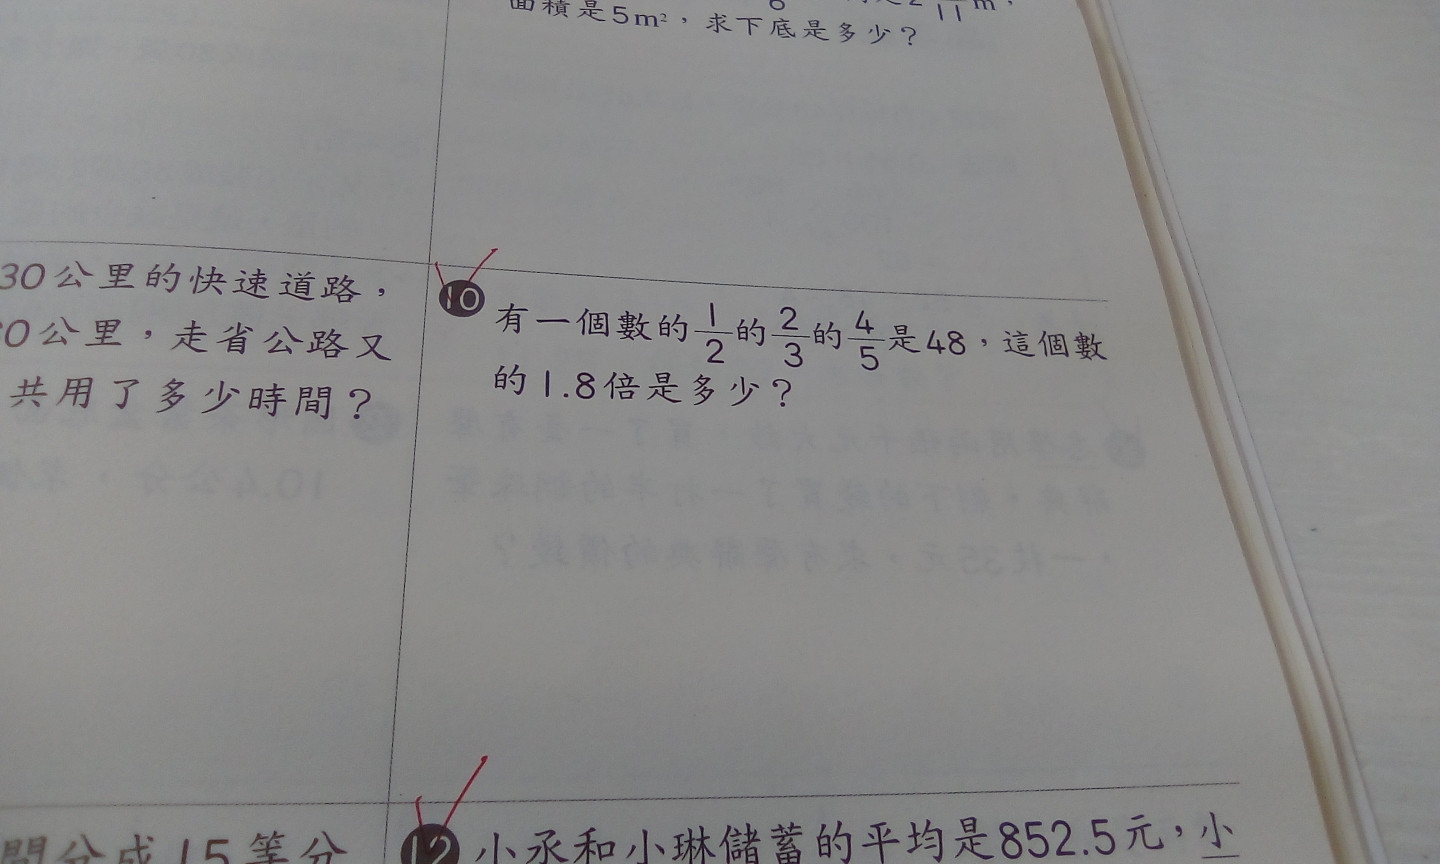 面積是5m²，求下底是多少？
30公里的快速道路，
0公里，走省公路又
共用了多少時間？
10 有一個數的1/2的2/3的4/5是48，這個數
的1.8倍是多少？
間分成15等分
12 小丞和小琳儲蓄的平均是852.5元，小